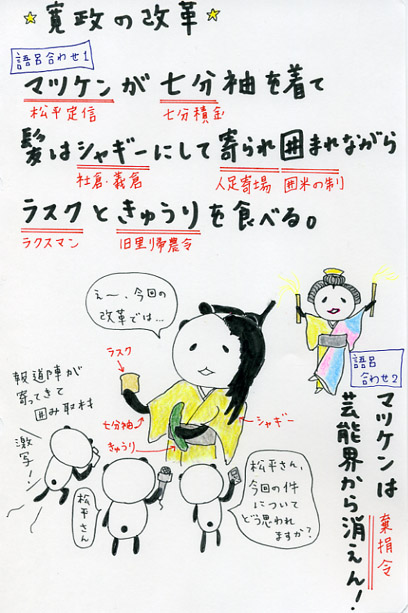 ☆寛政の改革☆
語呂合わせ1
マツケンが七分袖を着て
松平定信 七分積金
髪はシャギーにして寄られ囲まれながら
社倉・義倉 人足寄場 囲米の制
ラスクときゅうりを食べる。
ラクスマン 旧里帰農令
えー、今回の
改革では…
ラスク
七分袖
きゅうり
シャギー
報道陣が
寄ってきて
囲み取材
激写!
松平さん
松平さん、
今回の件
について
どう思われ
ますか?
語呂
合わせ2
マツケンは
芸能界から消えん!
棄捐令